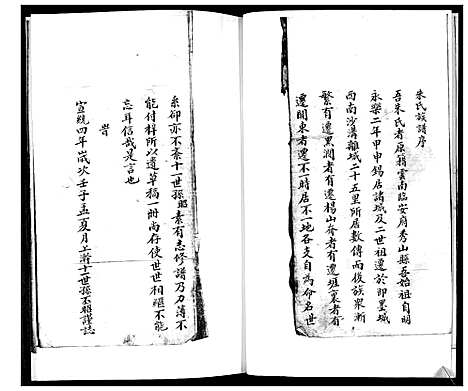 朱氏族譜序
吾朱氏者原籍雲南臨安府秀山縣吾始祖自明
永樂二年甲申錫居諸城及二世祖遷於即墨城
西南沙溝離城二十五里所居數傳而後族眾漸
繁有遷黑澗者有遷楊山夼者有遷垣裏者有
遷關東者遷不一時居不一地各支自為命名世
系卻亦不紊十一世孫昭素有志修譜乃力薄不
能付梓所以遺草稿一冊尚存使世世相繼不能
忘耳信哉是言也
旹
宣統四年歲次壬子孟夏月上澣十一世孫丕昭謹誌